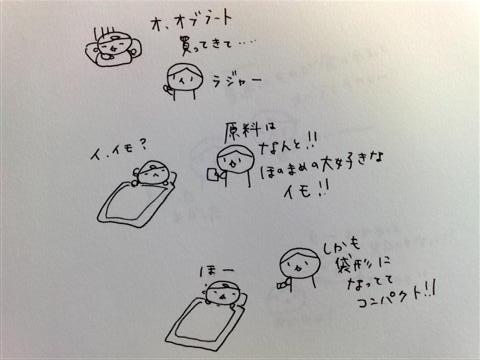 オ、オブラート
買ってきて‥‥
ラジャー
イ、イモ?
原料は
なんと!!
ほのまめの大好きな
イモ!!
ほー
しかも
袋形に
なってて
コンパクト!!